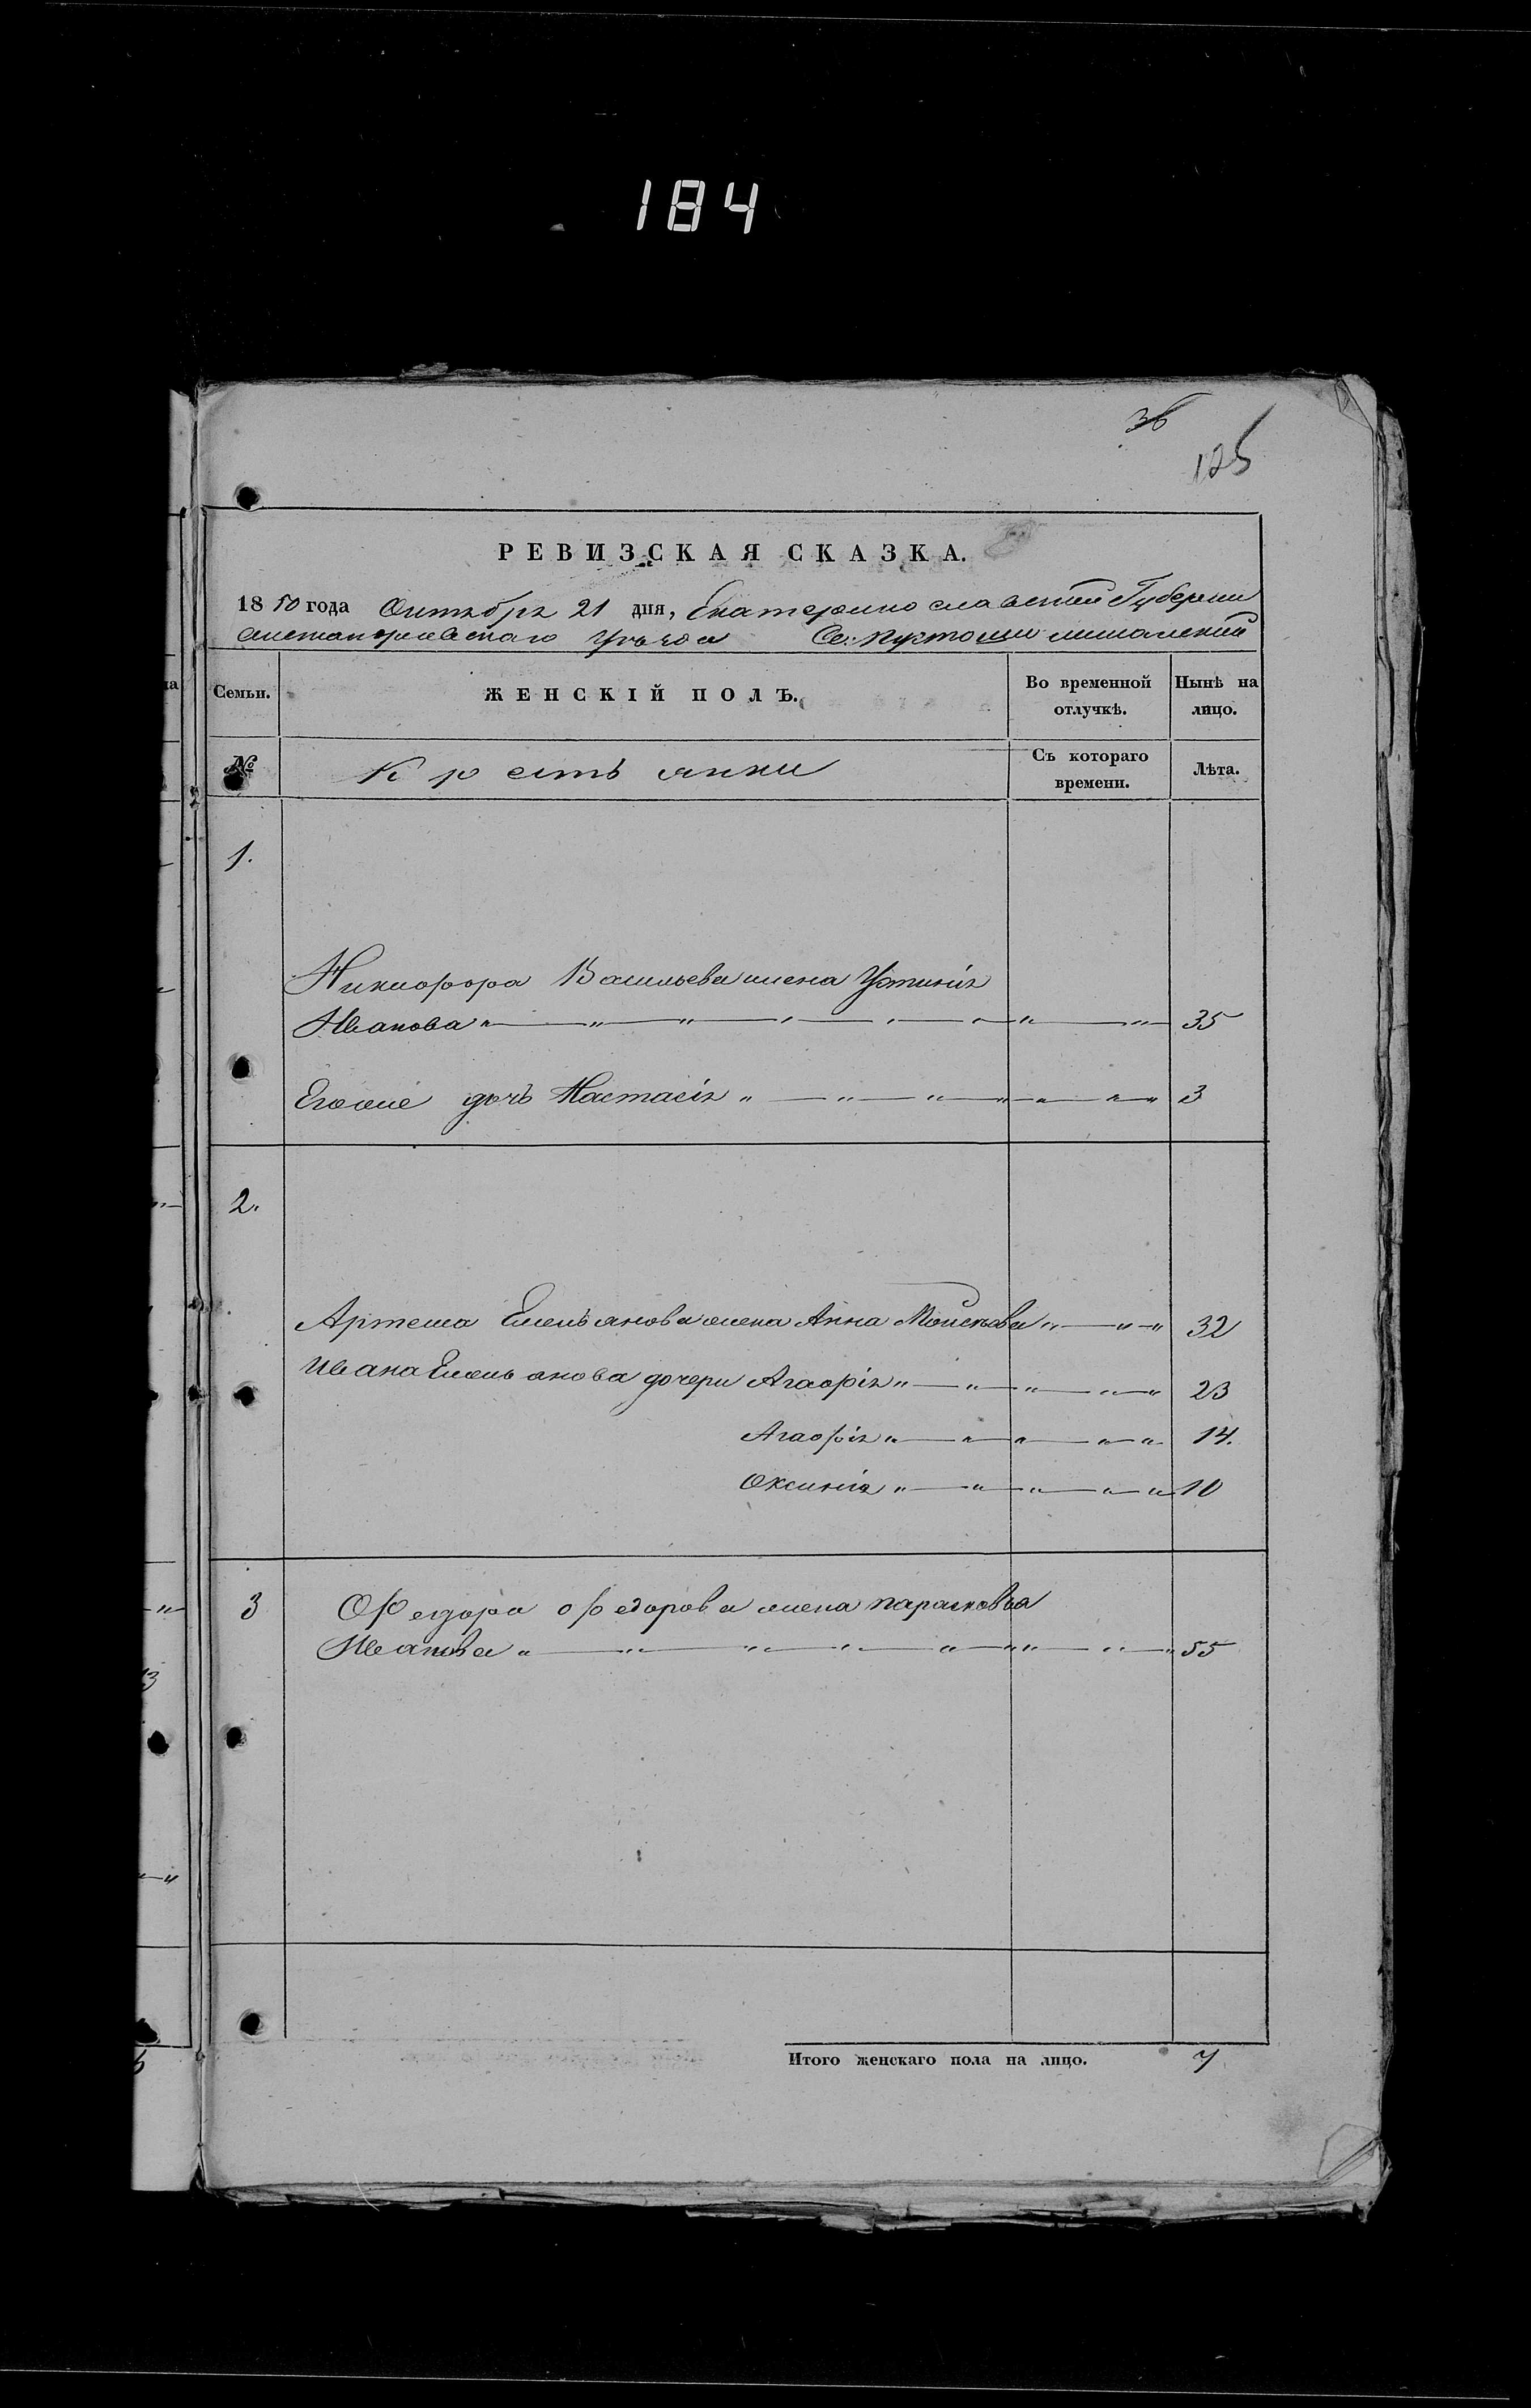 184
36
125
РЕВИЗСКАЯ СКАЗКА.
1850 года Октября 21 дня, Екатеринославской Губернии
Уезда Сел:
Семьи. ЖЕНСКІЙ ПОЛЪ. Во временной отлучкѣ. Нынѣ на лицо.
№ Крестьянки Съ котораго времени. Лѣта.
1.
Никиофора Васильева жена Устинія
Иванова " — " — " — " — " — " — " — " 35
Егоже дочь Настасія " — " — " — " — " — " — " 3
2.
Артема Емельянова жена Анна Моисѣева " — " — " 32
Ивана Емельянова дочери Агафія " — " — " — " — " 23
Агафія " — " — " — " — " 14.
Оксинія " — " — " — " — " 10
3 Федора Федорова жена парасковья
Иванова " — " — " — " — " — " — " — " 55
Итого женскаго пола на лицо. 7